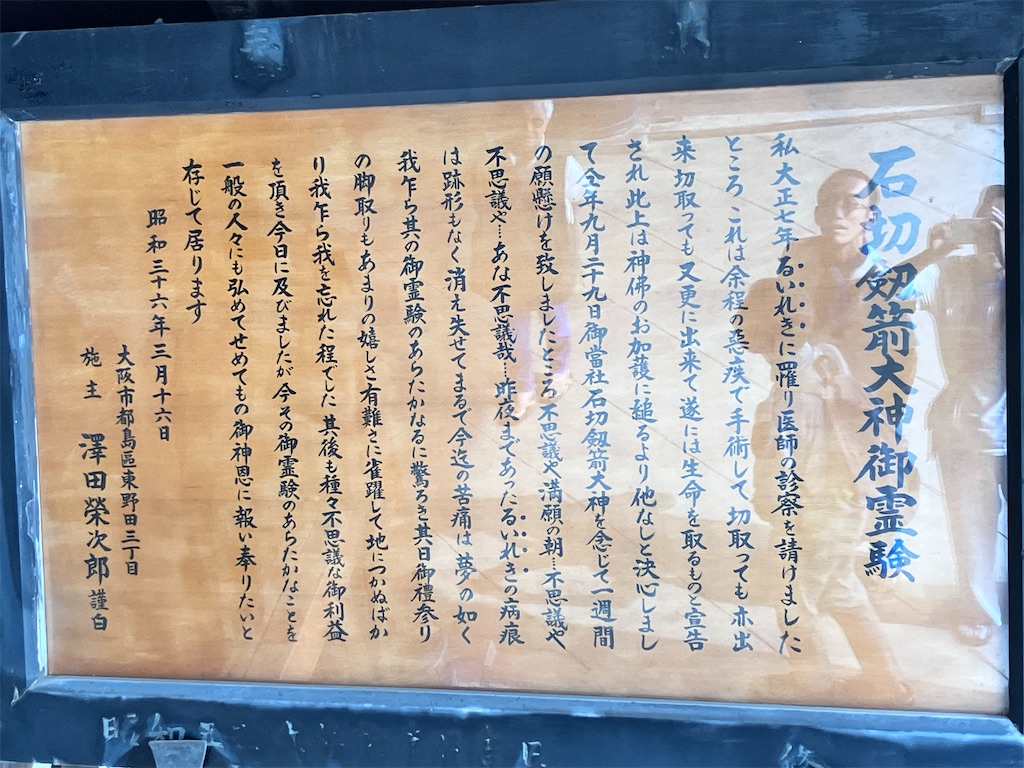 石切劔箭大神御霊験
私大正七年るいれきに罹り医師の診察を請けました
ところ、これは余程の惡疾で手術して、切取っても亦出
来切取っても又更に出来て遂には生命を取るものと宣告
され此上は神佛のお加護に縋るより他なしと決心しまし
て仝年九月二十九日御當社石切劔箭大神を念じて一週間
の願懸けを致しましたところ不思議や満願の朝…不思議や
不思議や…あな不思議哉…昨夜まであったるいれきの病痕
は跡形もなく消え失せてまるで今迄の苦痛は夢の如く
我乍ら其の御霊験のあらたかなるに驚ろき其日御禮参り
の脚取りもあまりの嬉しさ有難さに雀躍して地につかぬばか
り我乍ら我を忘れた程でした 其後も種々不思議な御利益
を頂き今日に及びましたが今その御霊験のあらたかなことを
一般の人々にも弘めてせめてもの御神恩に報い奉りたいと
存じて居ります
昭和三十六年三月十六日
大阪市都島區東野田三丁目
施主 澤田榮次郎 謹白
昭和五